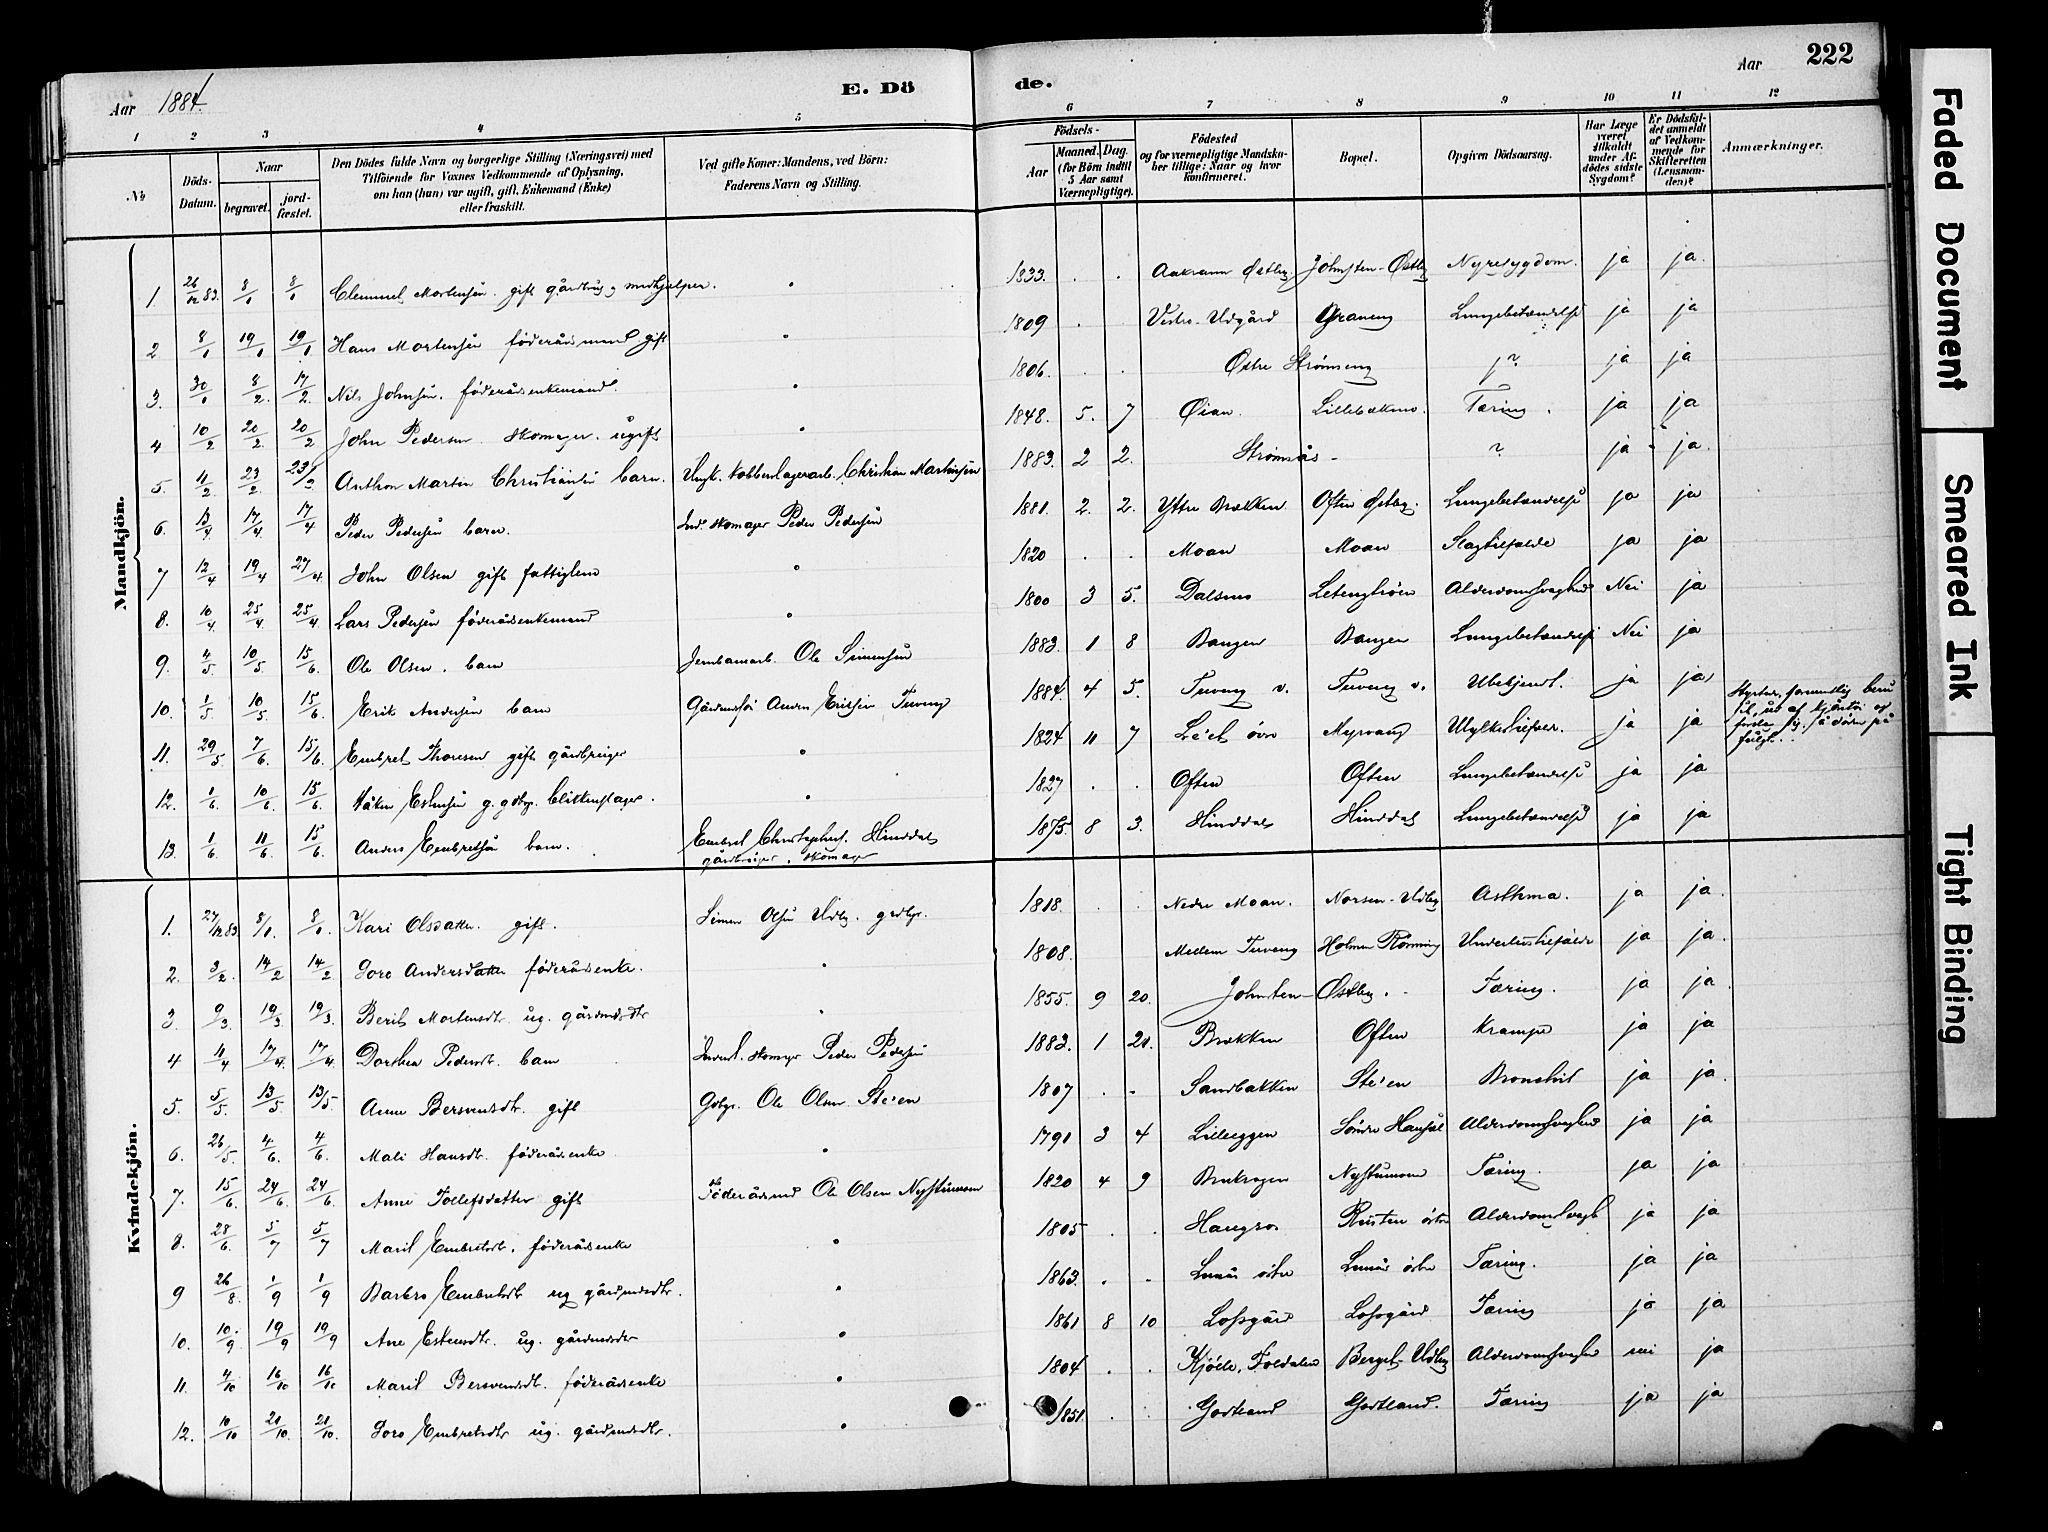 Aar 1884. E. Dö de. Aar 222
1 2 3 4 5 6 7 8 9 10 11 12
No
Döds-Datum.
Naar
begravet. jordfæstet.
Den Dödes fulde Navn og borgerlige Stilling (Næringsvei) med
Tilföiende for Voxnes Vedkommende af Oplysning,
om han (hun) var ugift, gift, Enkemand (Enke)
eller fraskilt.
Ved gifte Koner: Mandens, ved Börn:
Faderens Navn og Stilling.
Födsels-
Aar Maaned. Dag.
(for Börn indtil
5 Aar samt
Værnepligtige).
Födested
og for værnepligtige Mandskaber tillige: Naar og hvor
konfirmeret.
Bopæl.
Opgiven Dödsaarsag.
Har Læge været tilkaldt under Afdödes sidste Sygdom?
Er Dödsfaldet anmeldt af Vedkommende for Skifteretten (Lensmanden)?
Anmærkninger.
Mandkjön.
1 26/12 83. 8/1 8/1 Clemmet Mortensen. gift gårdbrug. 1833. Østby. Johnsten-Østby Nyresygdom. ja ja.
2 8/1 19/1 19/1 Hans Mortensen föderådsmand gift 1809 Udgård Graneng Lungebetændelse ja ja
3. 30/1 8/2. 17/2. Nils Johnsen. föderådsenkemand. 1806. Østre Strømseng ja ja
4 10/2 20/2 20/2 John Pedersen Skomager. ugift 1848. 5. 7 Øian. Lillebækmo. Tæring. ja ja
5. 11/2. 23/2. 23/2 Anthon Martin Christiansen barn. Christian Martinsen 1883. 2 2. Strømsås ? ja ja.
6. 13/4 17/4. 17/4 Peder Pedersen barn. Ind. skomager Peder Pedersen 1881. 2. 2. Yttre Brækken Often Østby. Lungebetændelse ja ja
7 12/4 19/4 27/4 John Olsen gift fattiglem 1820 Moan Moan Slagtilfælde ja ja
8. 10/4 25/4 25/4 Lars Pedersen föderådsenkemand 1800 3 5. Dalsmo Alderdomssvaghed Nei ja
9. 4/5 10/5. 15/6. Ole Olsen. barn Ole Simensen 1883. 1 8 Bangen Bangen Lungebetændelse Nei ja
10. 1/5 10/5 15/6 Erik Andersen barn Erichsen Tuveng 1884. 4 5. Tuveng v. Tuveng v. Ubekjendt. ja ja
11. 29/5 7/6. 15/6. Embret Thoresen gift gårdbruger 1824 11 7 øvre Myrvang Ulykkestilfæl. ja ja
12. 1/6 10/6 15/6. Håken Estensen g. gdbr. 1827 Often Often Lungebetændelse ja ja
13. 1/6. 11/6. 15/6. Anders Embretsen barn. Embret Christophers. Hinddal
gårdbruger, skomager 1875. 8 3. Hinddal Hinddal Lungebetændelse ja ja
Kvindekjön.
1. 27/12 83 8/1. 8/1. Kari Olsdatter. gift. Simen Olsen Udby. gdbr. 1818. Nedre Moan. Norsen-Udby Asthma. ja ja.
2. 3/2. 14/2 14/2 Goro Andersdatter föderådsenke. 1808. Mellem Tuveng Holmen Rønning ja ja.
3. 9/3. 19/3 19/3. Berit Mortensdtr. ug. gårdmdsdtr 1855. 9 20. Johnsten-Østby. Tæring. ja ja.
4 11/4 17/4. 17/4. Dorthea Pedersdt. barn skomager Peder Pedersen 1883. 1 21. Brækken Often Krampe ja ja
5. 5/5. 13/5 13/5 Anne Bersvensdtr. gift Gdbr. Ole Olsen Steien 1807 Sandbakken Steien Bronchit ja ja.
6. 26/5. 4/6. 4/6. Mali Hansdtr. föderådsenke 1791 3 4 Lilleeggen Søndre Alderdomssvaghed ja ja
7. 15/6 24/6 24/6. Anne Tollefsdatter gift Föderådsmd Ole Olsen Nystumoen 1820 4 9 Nystumoen Tæring. ja ja
8. 28/6. 5/7 5/7 Marit Embretsdt. föderådsenke 1805 Rusten østre Alderdomssvagh. ja ja
9 26/8. 1/9 1/9 Barbro Embretsdtr ug gårdmdsdtr. 1863. Lunås østre Lunås østre Tæring. ja ja
10. 10/9 19/9 19/9 Ane Estensdtr. ug. gårdmdsdtr 1861 8 10 Lossgård Lossgård Tæring ja ja
11. 4/10 16/10 16/10 Marit Bersvendsdt. föderådsenke 1804 Kjöle, Foldalen Berget-Udby Alderdomssvaghed nei ja
12. 10/10 21/10. 21/10. Goro Embretsdtr ug. gårdmdsdtr. 1851 Godtland Godtland. Tæring ja ja
Faded Document
Smeared Ink
Tight Binding